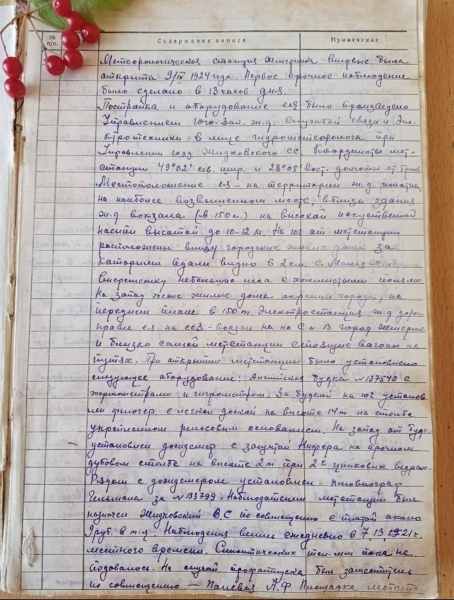 № п/п. Содержание записи Примечание
Метеорологическая станция Жмеринка впервые была
открыта 9/IX 1924 года. Первое срочное наблюдение
было сделано в 13 часов дня.
Постройка и оборудование её было произведено
Управлением Юго-Зап. ж.д. Службой связи и Эле-
ктротехники в лице гидрометеоролога при
Управлении юзжд Жидковского СС. Координаты мет-
станции 49°02' сев. шир. и 28°05' вост. долготы от Грин.
Местоположение её – на территории ж.д.
на наиболее возвышенном месте, вблизи здания
ж.д. вокзала (в 150 м.) на высокой искуственной
насыпи высотой до 10-12 м. На юг от метстанции
расположены внизу городские жилые дома за
которыми вдали видно в 2 км. с.
небольшие леса с холмистыми полями
На запад тоже жилые дома окраины города, на
переднем плане в 150 м. Электростанция ж.д.
на ссз – вокзал на С и В город Жмеринка
и близко самой метстанции стоящие вагоны на
путях. При открытии метстанции было установлено
следующее оборудование: Английская будка №137540 с
термометрами и гигрометром. За будкой на юг установ-
лен флюгер с легкой доской на высоте 14 м на столбе
укрепленном рельсовым основанием. На запад от будки
установлен дождемер с защитой Нифера на прочном
дубовом столбе на высоте 2 м при 2х цинковых ведрах
Рядом с дождемером установлен плювиограф
Гельмана за №133799. Наблюдателем метстанции был
назначен Жидковский В.С по совмещению с платой около
9 руб. в м-ц. Наблюдения велись ежедневно в 7, 13 и 21 ч.
местного времени. Синоптических тел-мм пока не
подавалось. На случай профотпуска был заместитель
по совмещению – А.Ф Площадка метста-